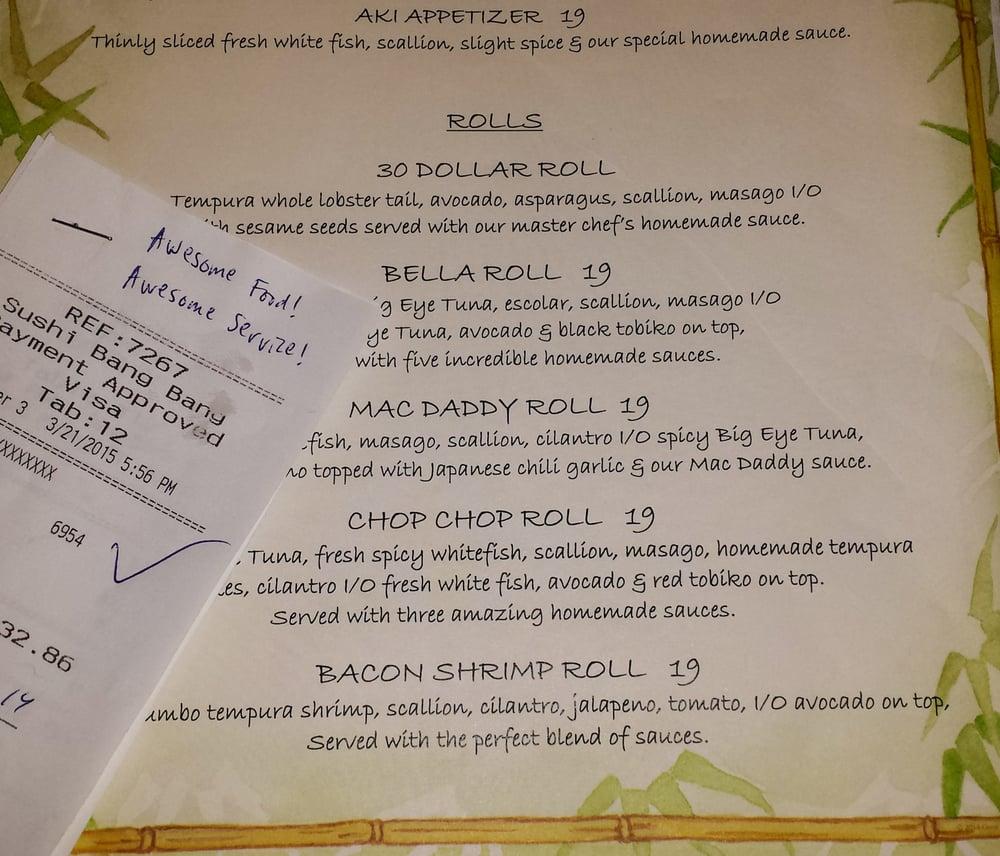 AKI APPETIZER 19
Thinly sliced fresh white fish, scallion, slight spice & our special homemade sauce.
ROLLS
30 DOLLAR ROLL
Tempura whole lobster tail, avocado, asparagus, scallion, masago I/O
sesame seeds served with our master chef's homemade sauce.
BELLA ROLL 19
Eye Tuna, escolar, scallion, masago I/O
Tuna, avocado & black tobiko on top,
with five incredible homemade sauces.
MAC DADDY ROLL 19
fish, masago, scallion, cilantro I/O spicy Big Eye Tuna,
topped with Japanese chili garlic & our Mac Daddy sauce.
CHOP CHOP ROLL 19
Tuna, fresh spicy whitefish, scallion, masago, homemade tempura
cilantro I/O fresh white fish, avocado & red tobiko on top.
Served with three amazing homemade sauces.
BACON SHRIMP ROLL 19
tempura shrimp, scallion, cilantro, jalapeno, tomato, I/O avocado on top,
Served with the perfect blend of sauces.
Awesome Food!
Awesome Service!
REF:7267
Sushi Bang Bang
Payment Approved
Visa
Tab:12
3 3/21/2015 5:56 PM
XXXXXXXX
6954
32.86
14